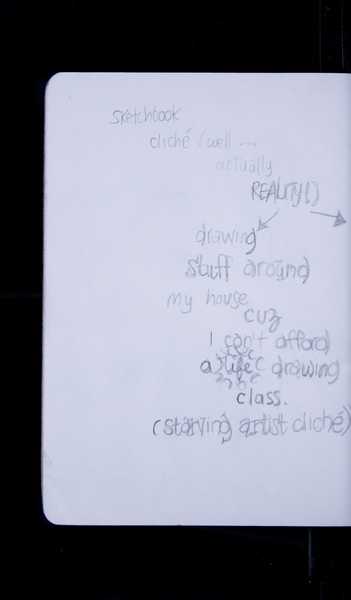 sketchbook
cliché (well ...
actually
REALITY!)
drawing
stuff around
my house
cuz
I can't afford
a life drawing
class.
(starving artist cliché)